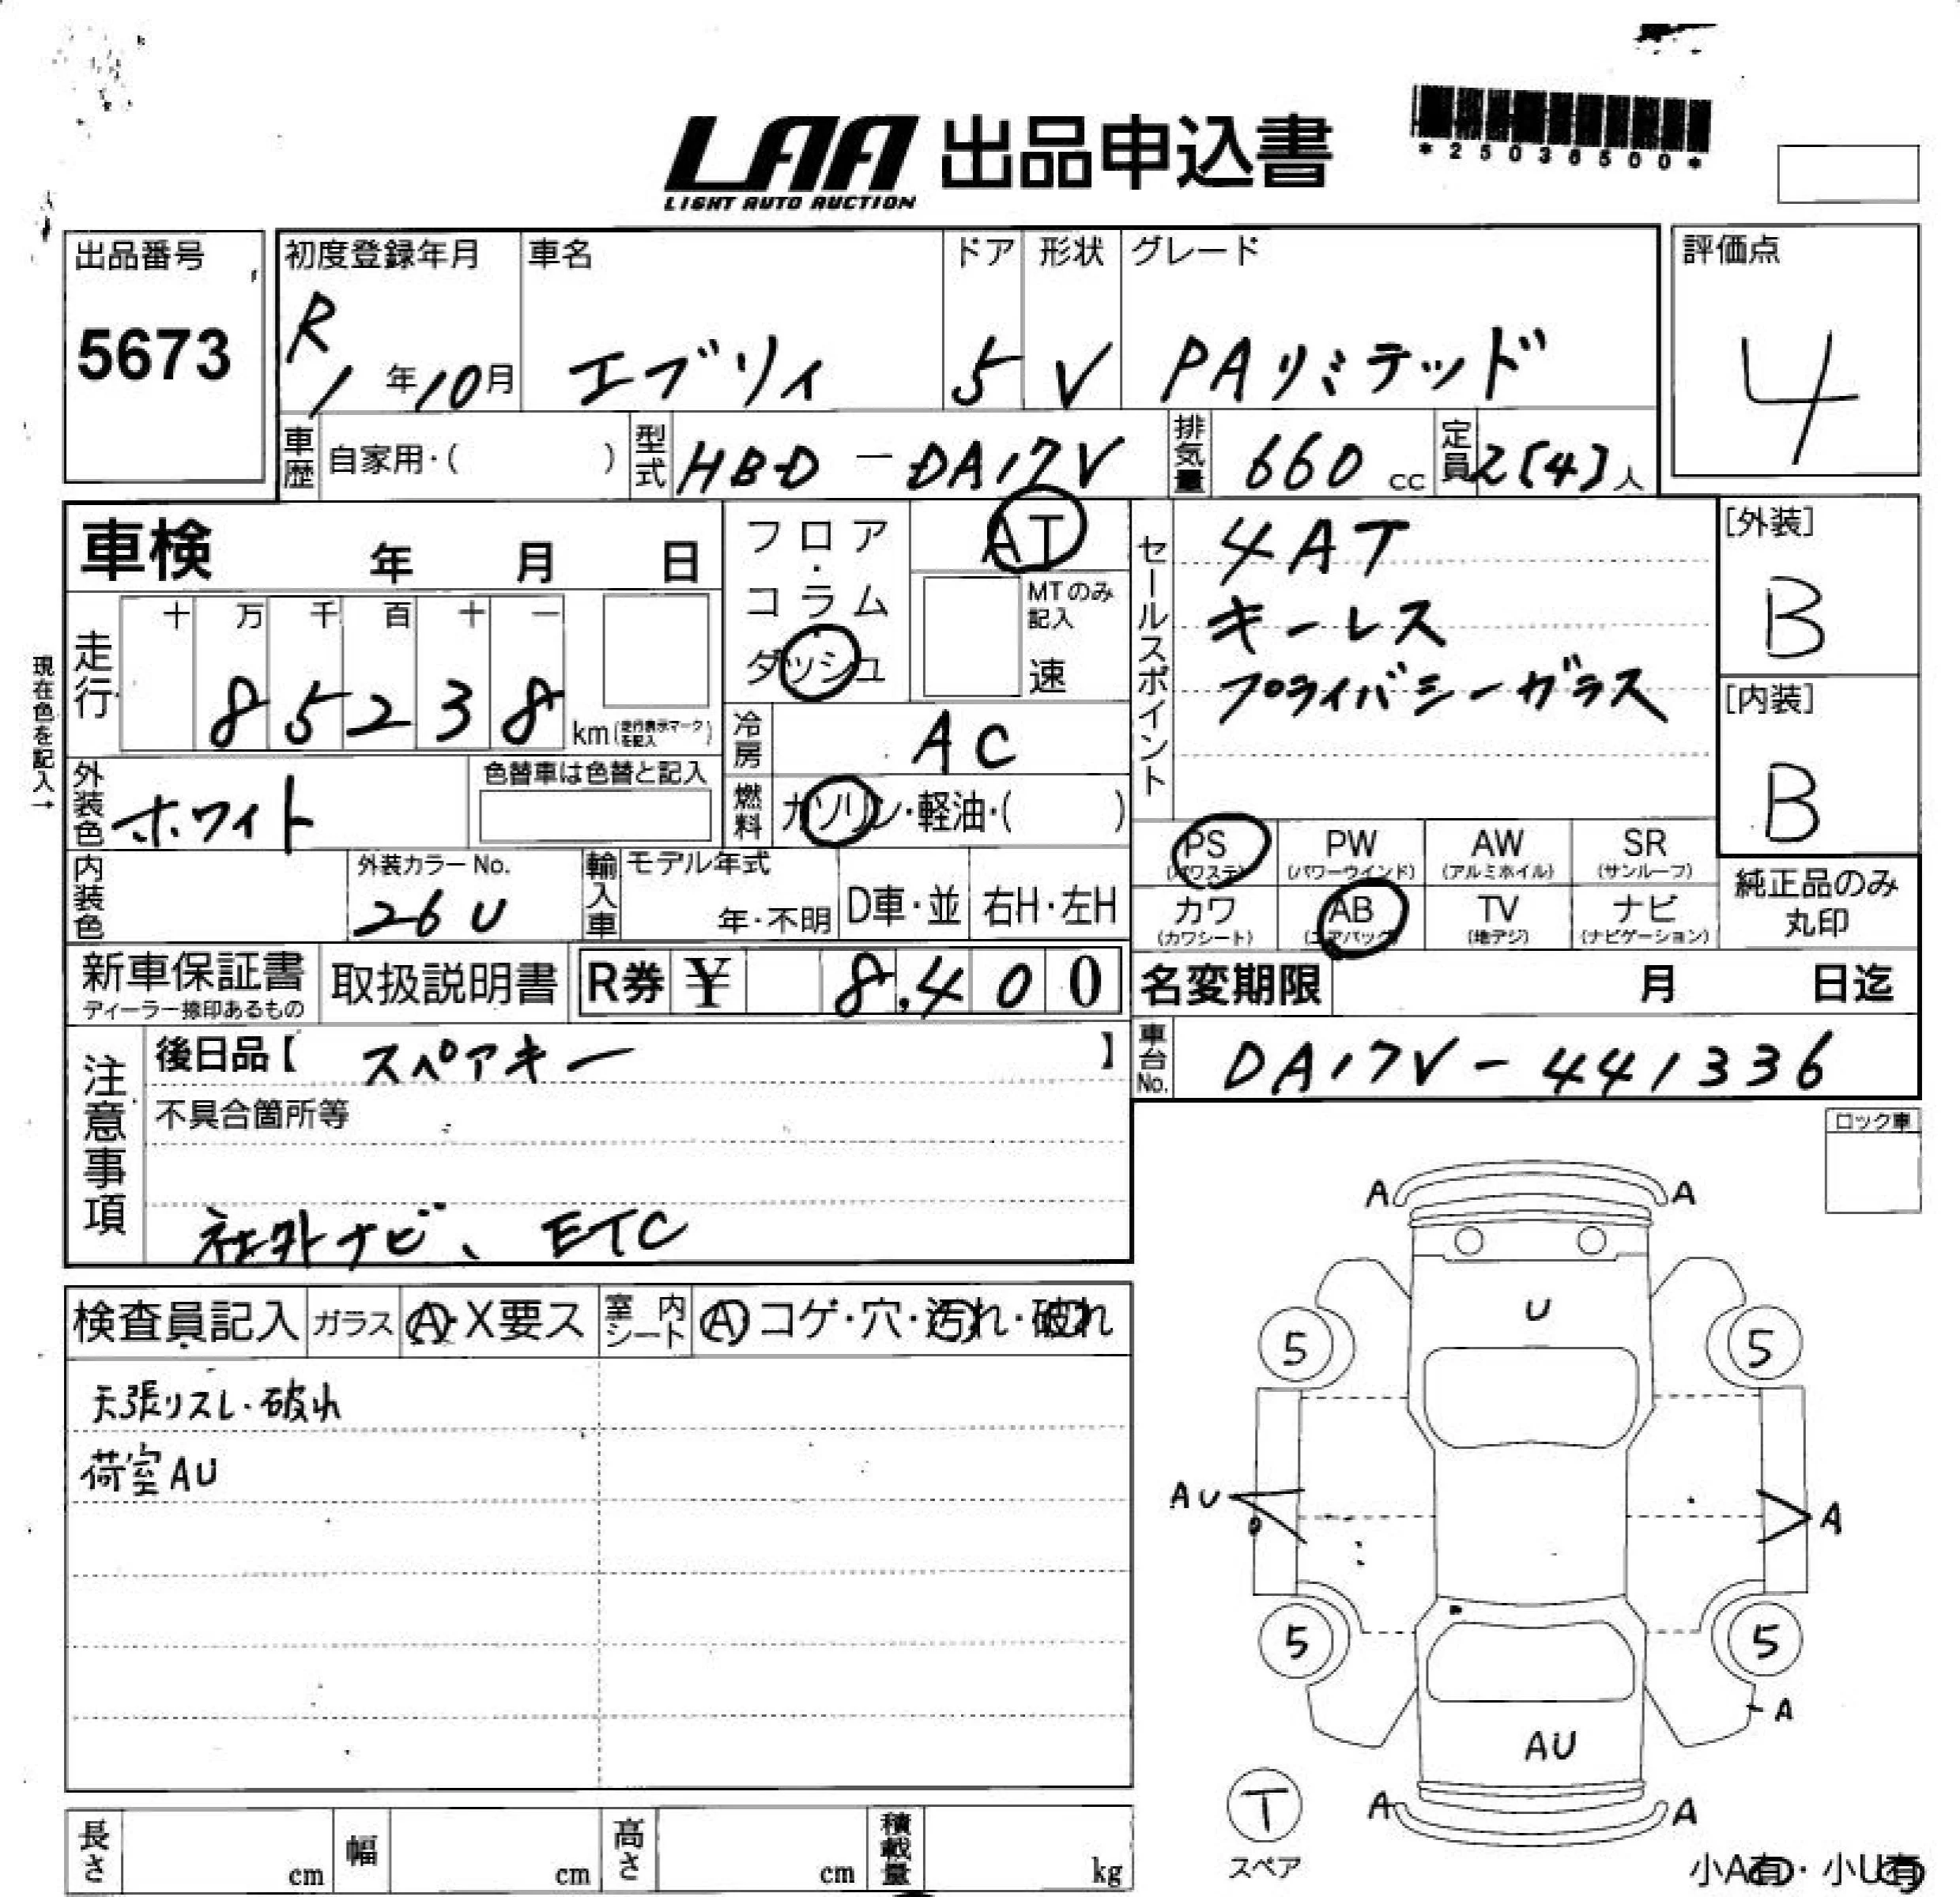 LAA 出品申込書
LIGHT AUTO AUCTION
*25036500*
出品番号
5673
初度登録年月
R1年10月
車名
エブリィ
ドア
5
形状
V
グレード
PAリミテッド
評価点
4
車歴 自家用・( )
型式 HBD-DA17V
排気量 660 cc
定員 2[4]人
車検 年 月 日
フロア・コラム・ダッシュ
AT
MTのみ記入
速
セールスポイント
4AT
キーレス
プライバシーガラス
[外装]
B
[内装]
B
現在色を記入→
走行
十 万 千 百 十 一
8 5 2 3 8 km(走行表示マークを記入)
冷房 AC
外装色 ホワイト
色替車は色替と記入
燃料 ガソリン・軽油・( )
内装色
外装カラーNo.
26U
輸入車
モデル年式
年・不明
D車・並
右H・左H
PS (パワステ)
PW (パワーウインド)
AW (アルミホイル)
SR (サンルーフ)
カワ (カワシート)
AB (エアバック)
TV (地デジ)
ナビ (ナビゲーション)
純正品のみ
丸印
新車保証書
ディーラー捺印あるもの
取扱説明書
R券 ¥ 8,400
名変期限 月 日迄
注意事項
後日品【 スペアキー 】
不具合箇所等
社外ナビ、ETC
車台No. DA17V-441336
ロック車
検査員記入 ガラス A・X要ス
室内シート A コゲ・穴・汚れ・破れ
天張リスレ・破れ
荷室AU
A A
U
5 5
AU A
5 5
A
AU
A A
T
スペア
小A有・小U有
長さ cm
幅 cm
高さ cm
積載量 kg